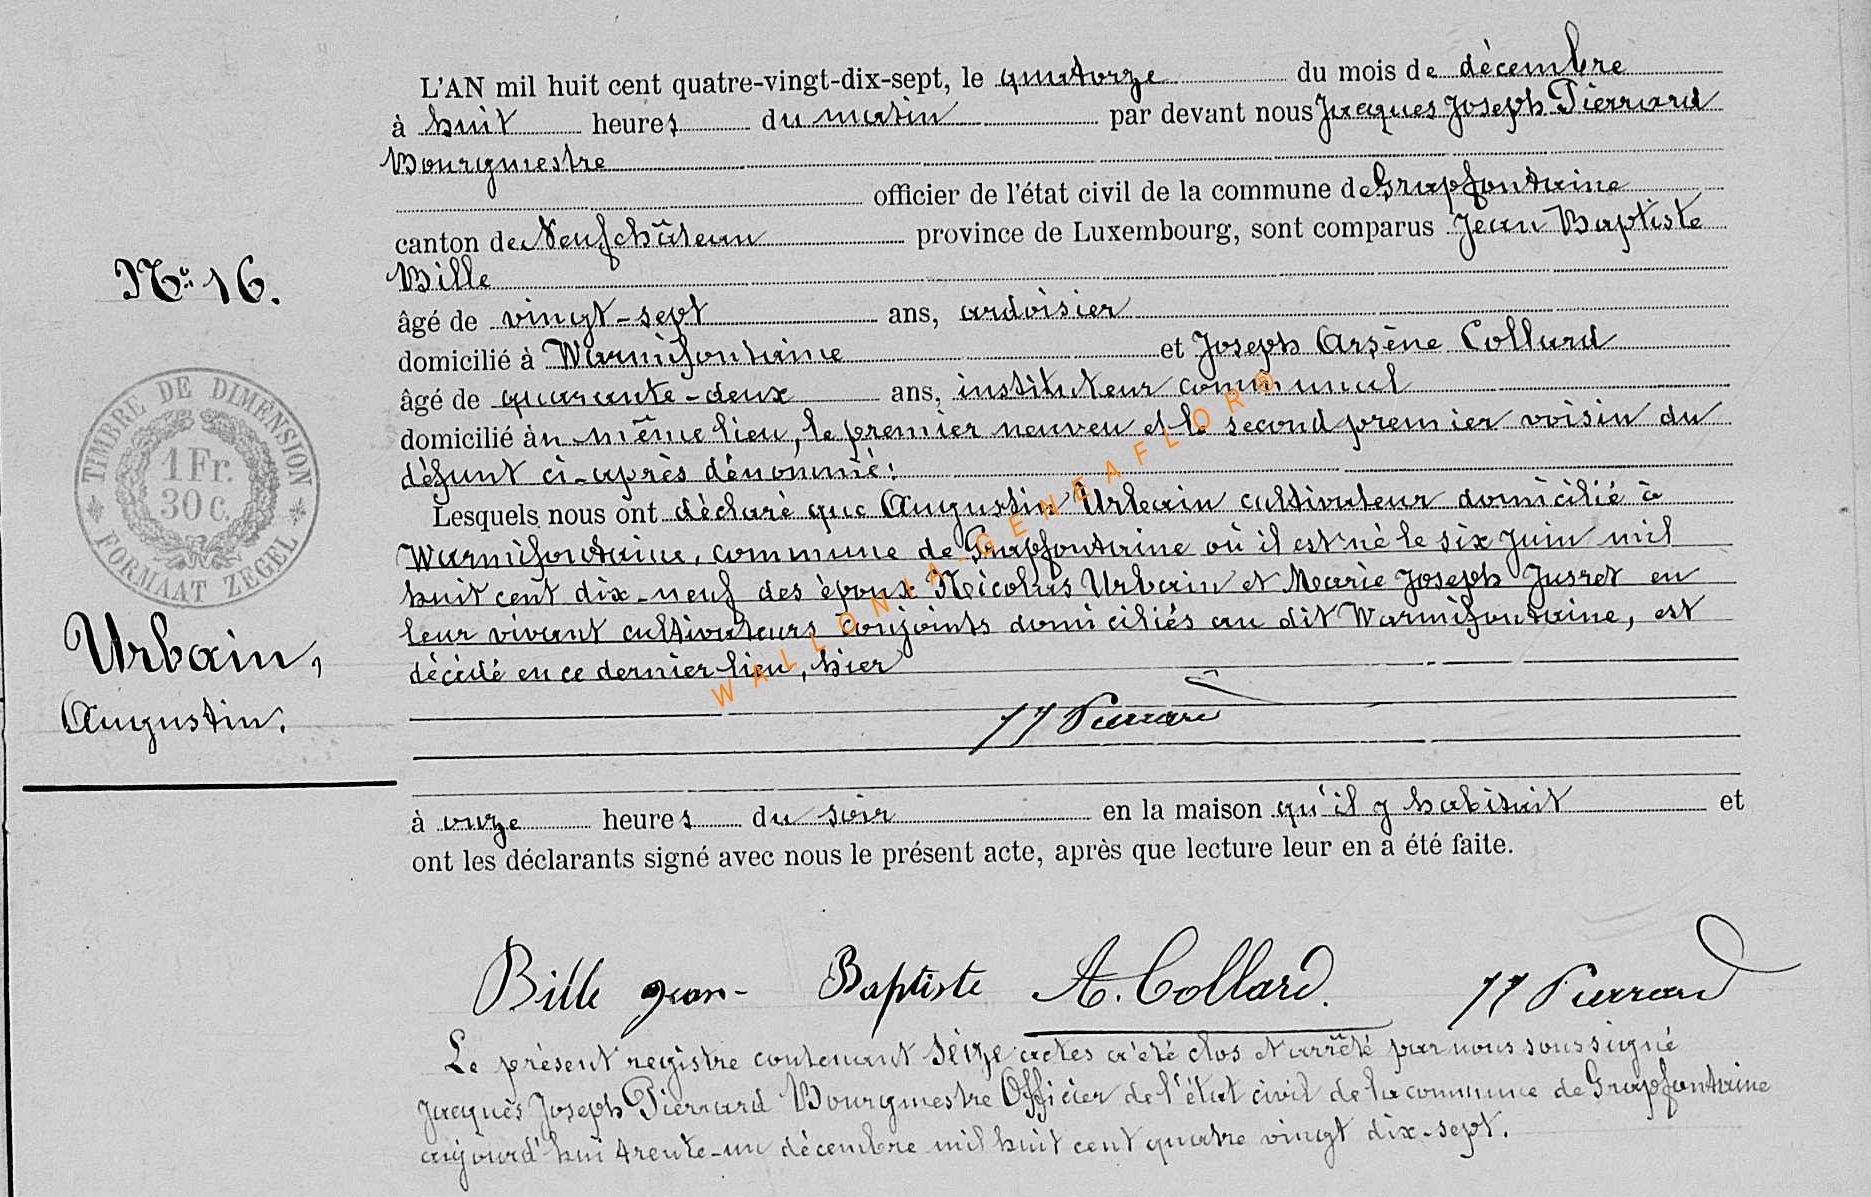 L'AN mil huit cent quatre-vingt-dix-sept, le quatorze du mois de décembre
à huit heures du matin par devant nous Jacques Joseph Pierrard
Bourgmestre
officier de l'état civil de la commune de Grapfontaine
canton de Neufchâteau province de Luxembourg, sont comparus Jean Baptiste
Bille
âgé de vingt-sept ans, ardoisier
domicilié à Warmifontaine et Joseph Arsène Collard
âgé de quarante-deux ans, instituteur communal
domicilié àu même lieu, le premier neuveu et le second premier voisin du
défunt ci-après dénommé:
Lesquels nous ont déclaré que Augustin Urbain cultivateur domicilié à
Warmifontaine, commune de Grapfontaine où il est né le six Juin mil
huit cent dix-neuf des époux Nicolas Urbain et Marie Joseph Jusret en
leur vivant cultivateurs conjoints domiciliés au dit Warmifontaine, est
décédé en ce dernier lieu, hier
JJ Pierrard
à onze heures du soir en la maison qu'il y habitait et
ont les déclarants signé avec nous le présent acte, après que lecture leur en a été faite.
Bille jean-Baptiste A. Collard. JJ Pierrard
Le présent registre contenant seize actes a été clos et arrêté par nous soussigné
Jacques Joseph Pierrard Bourgmestre Officier de l'état civil de la commune de Grapfontaine
aujourd'hui trente-un décembre mil huit cent quatre vingt dix-sept.
No: 16.
TIMBRE DE DIMENSION
1 Fr.
30 c.
FORMAAT ZEGEL
Urbain,
Augustin.
WALLONIA-GENEAFLOR®